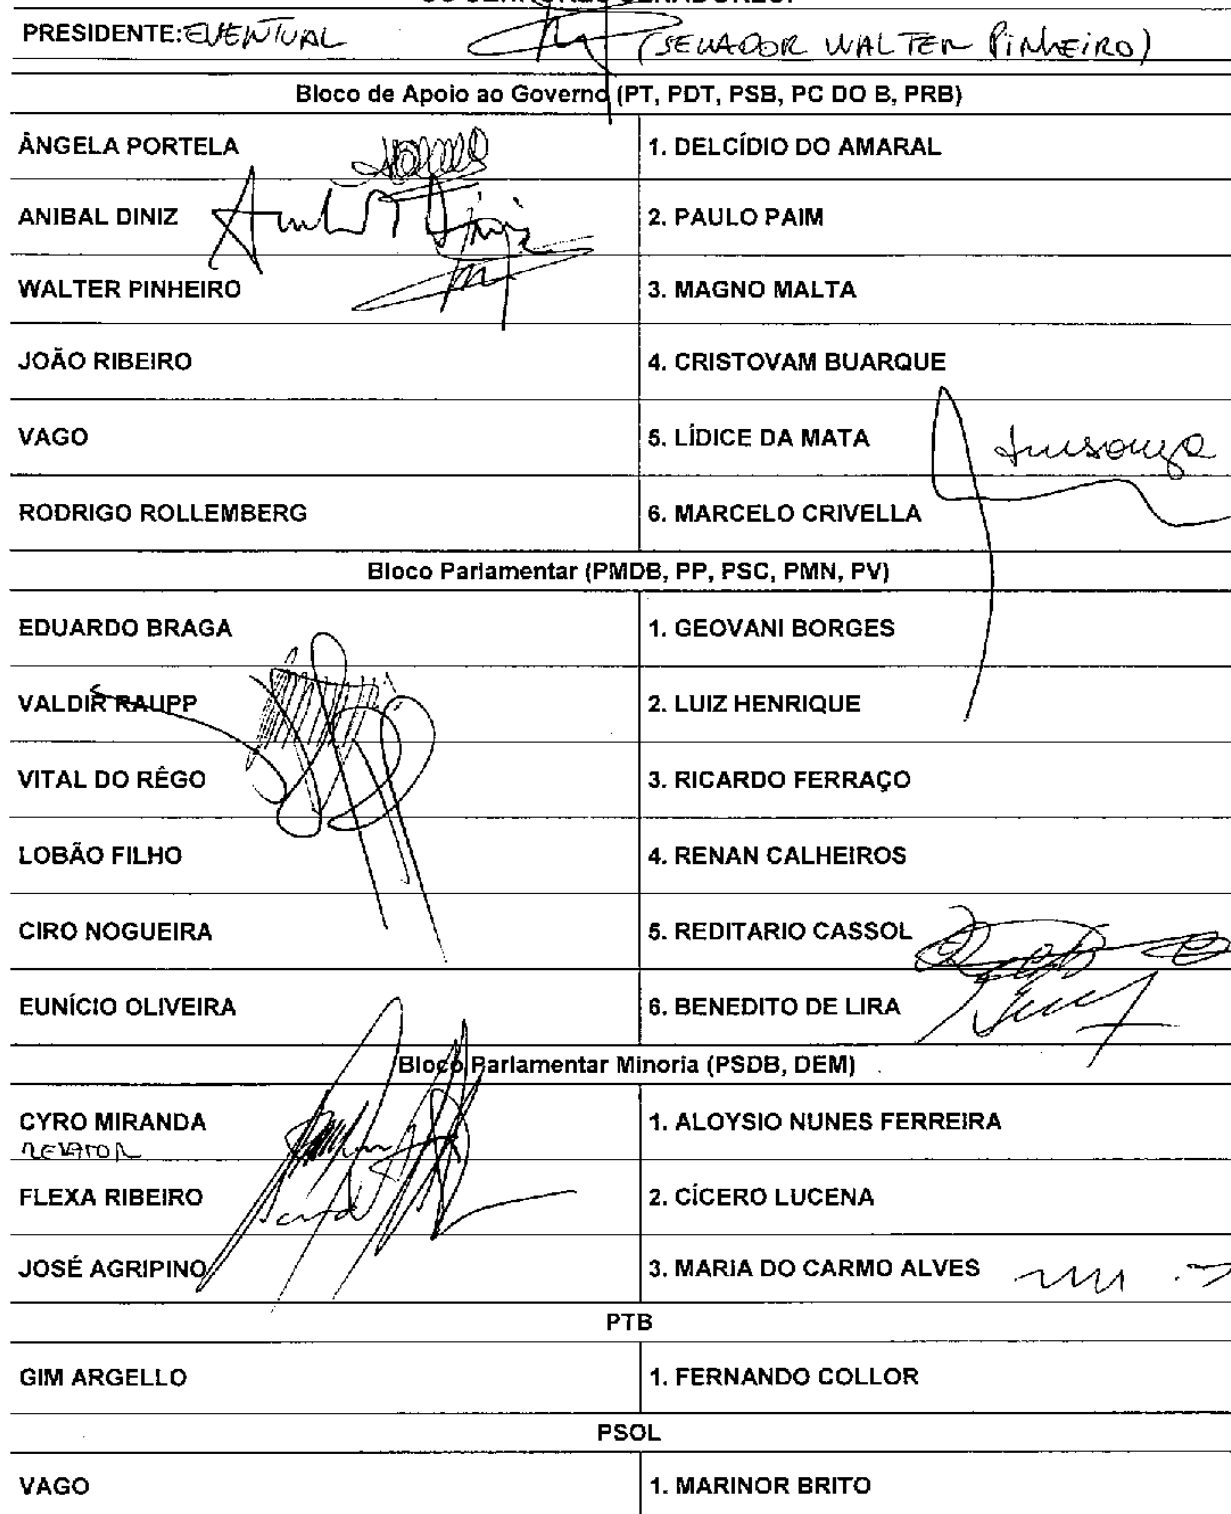 PRESIDENTE: EVENTUAL (SENADOR WALTER PINHEIRO)
Bloco de Apoio ao Governo (PT, PDT, PSB, PC DO B, PRB)
ÂNGELA PORTELA 1. DELCÍDIO DO AMARAL
ANIBAL DINIZ 2. PAULO PAIM
WALTER PINHEIRO 3. MAGNO MALTA
JOÃO RIBEIRO 4. CRISTOVAM BUARQUE
VAGO 5. LÍDICE DA MATA
RODRIGO ROLLEMBERG 6. MARCELO CRIVELLA
Bloco Parlamentar (PMDB, PP, PSC, PMN, PV)
EDUARDO BRAGA 1. GEOVANI BORGES
VALDIR RAUPP 2. LUIZ HENRIQUE
VITAL DO RÊGO 3. RICARDO FERRAÇO
LOBÃO FILHO 4. RENAN CALHEIROS
CIRO NOGUEIRA 5. REDITARIO CASSOL
EUNÍCIO OLIVEIRA 6. BENEDITO DE LIRA
Bloco Parlamentar Minoria (PSDB, DEM)
CYRO MIRANDA 1. ALOYSIO NUNES FERREIRA
RELATOR
FLEXA RIBEIRO 2. CÍCERO LUCENA
JOSÉ AGRIPINO 3. MARIA DO CARMO ALVES
PTB
GIM ARGELLO 1. FERNANDO COLLOR
PSOL
VAGO 1. MARINOR BRITO